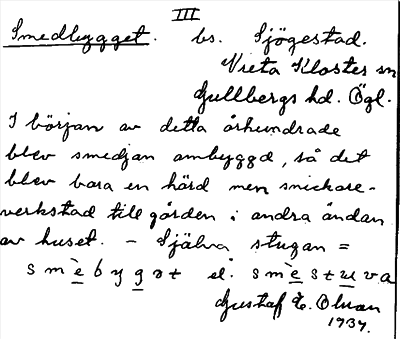 III
Smedbygget. bs. Sjögestad.
Vreta Kloster sn
Gullbergs hd. Ögl.
I början av detta århundrade
blev smedjan ombyggd, så det
blev bara en härd men snickare-
verkstad till gården i andra ändan
av huset. - Själva stugan =
smèbygət el. smèstuva
Gustaf E. Olsson
1937.